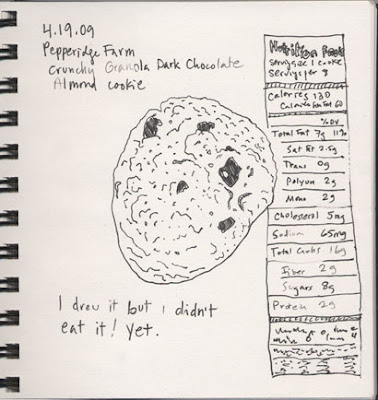 4.19.09
Pepperidge Farm
Crunchy Granola Dark Chocolate
Almond cookie
Nutrition Facts
serving size 1 cookie
servings per 8
Calories 130
Calories from Fat 60
% DV
Total Fat 7g 11%
Sat Fat 2.5g
Trans 0g
Polyun 2g
Mono 2g
Cholesterol 5mg
Sodium 65mg
Total Carbs 16g
Fiber 2g
Sugars 8g
Protein 2g
I drew it but i didn't
eat it! yet.